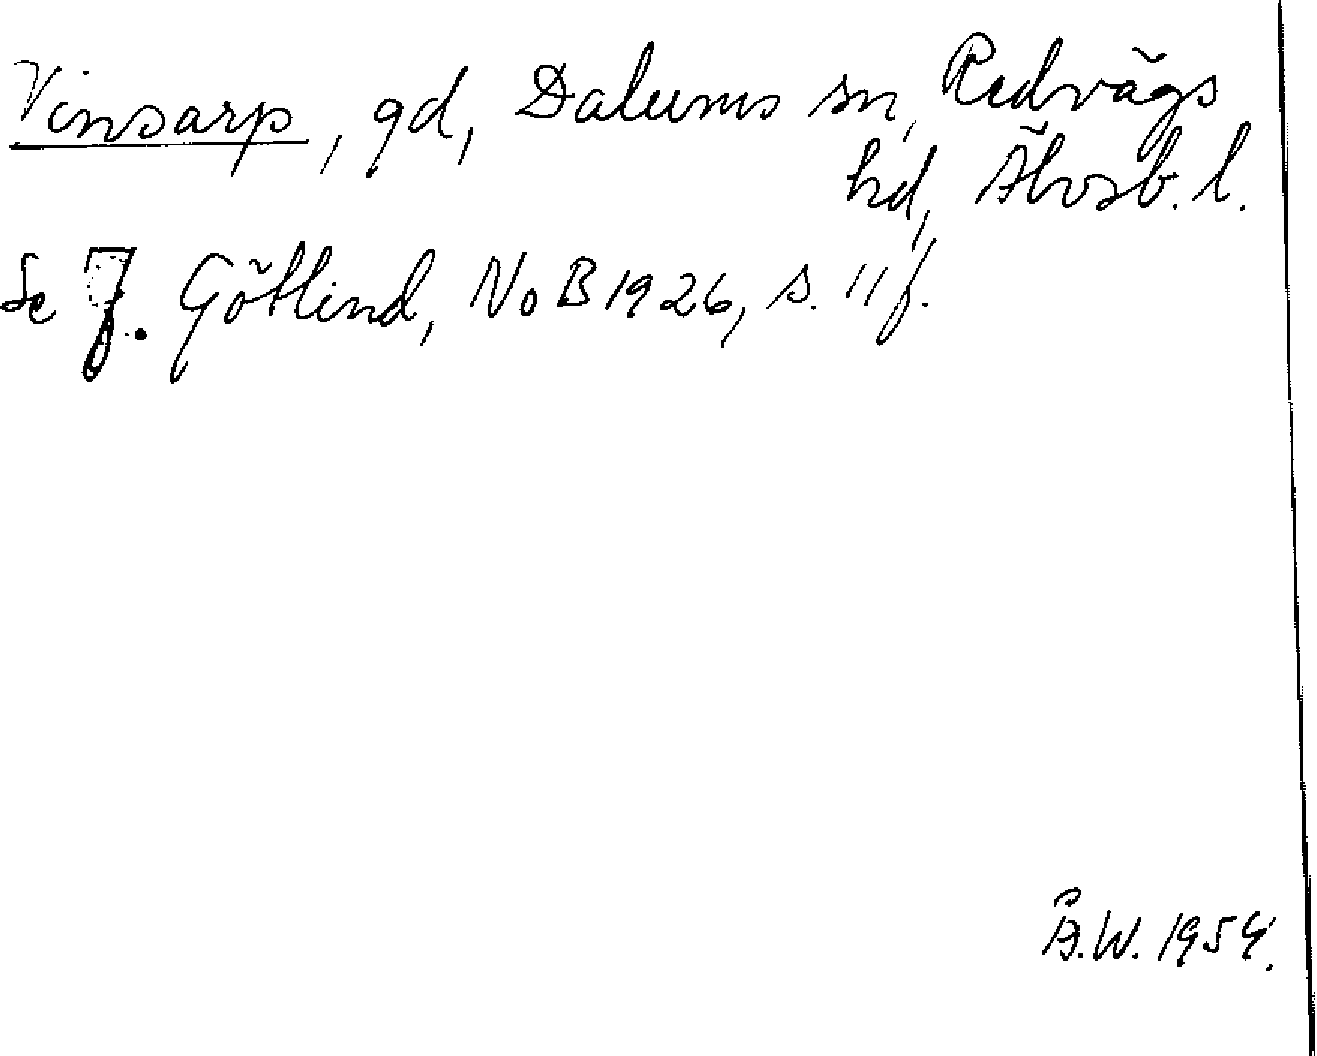 Vinsarp, gd, Dalums sn, Redvägs
hd, Älvsb. l.
Se J. Götlind, NoB 1926, s. 11 f.
Å.W. 1954.